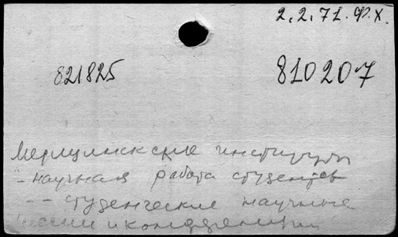 2.2.71.Ф.Х.
821825 810207
Медицинские институты
- научная работа студентов
-- студенческие научные
и конференции